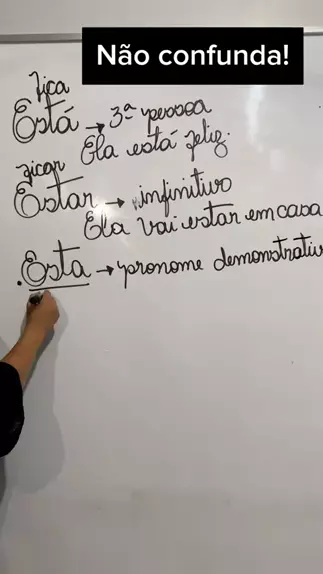 Não confunda!
fica
Está → 3ª pessoa
Ela está feliz.
ficar
Estar → infinitivo
Ela vai estar em casa
. Esta → pronome demonstrativ